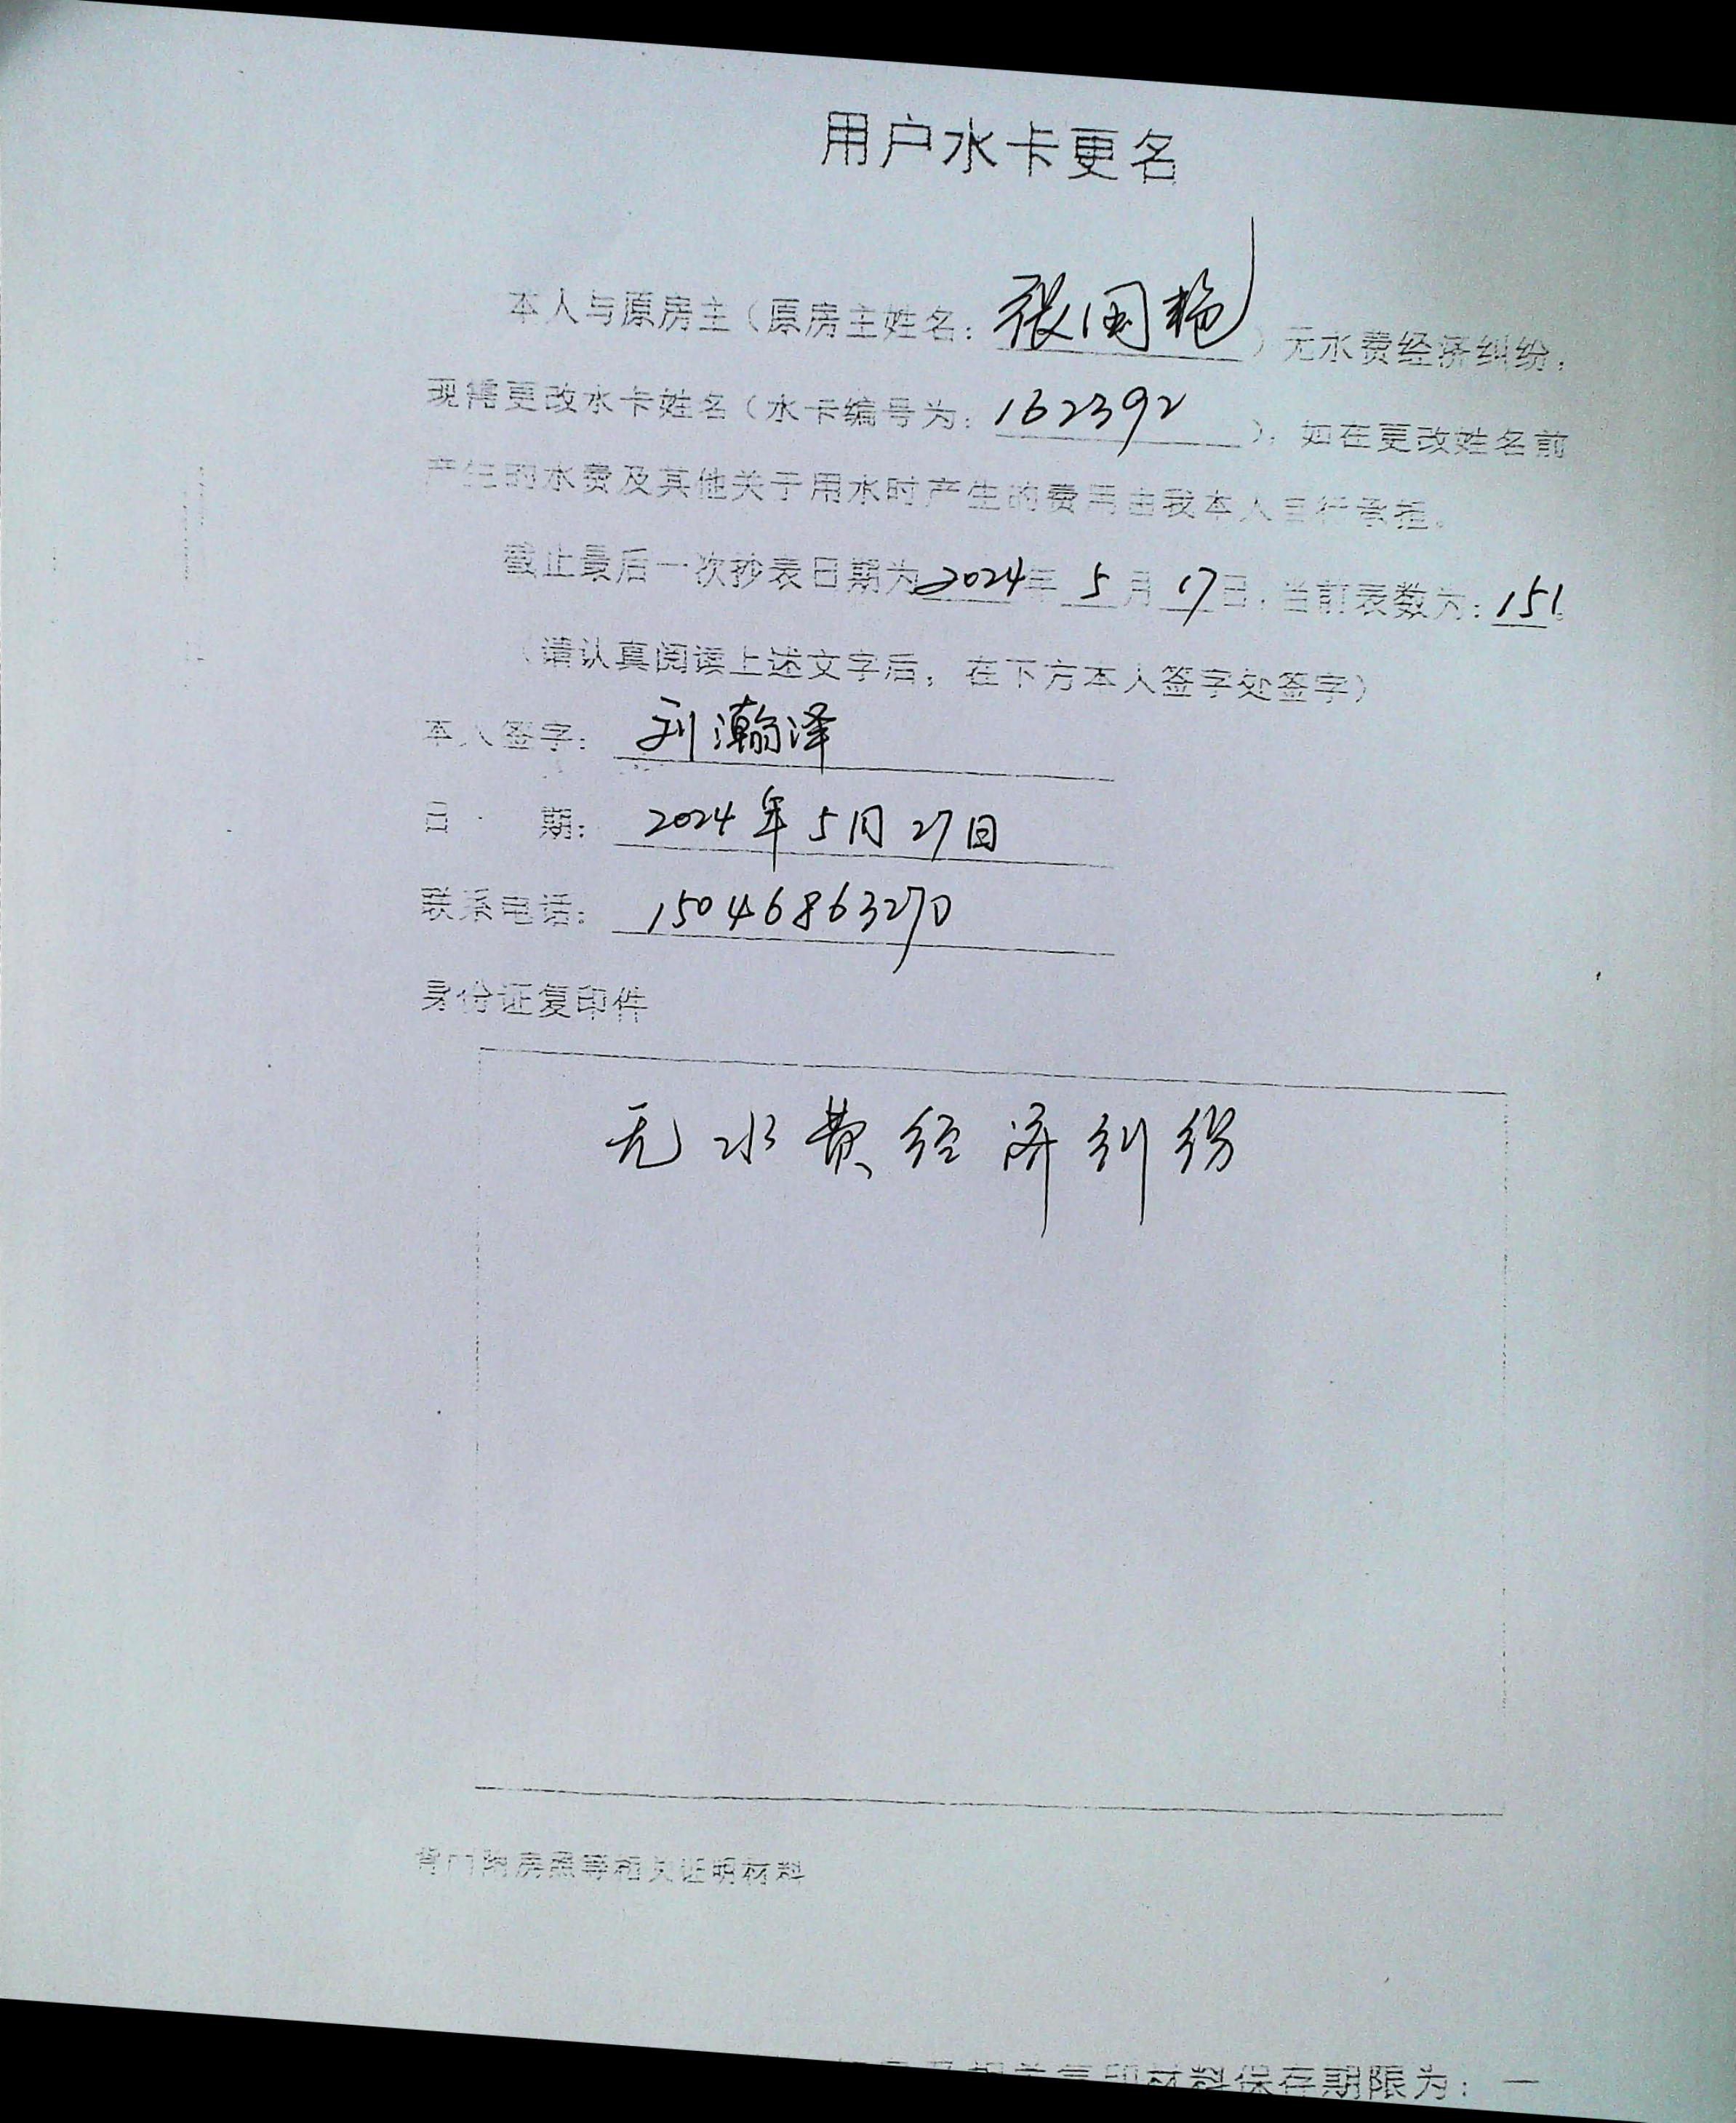 用户水卡更名
本人与原房主（原房主姓名：张国艳）无水费经济纠纷，
现需更改水卡姓名（水卡编号为：162392），如在更改姓名前
产生的水费及其他关于用水时产生的费用由我本人自行承担。
截止最后一次抄表日期为2024年5月17日，当前表数为：151。
（请认真阅读上述文字后，在下方本人签字处签字）
本人签字：刘瀚泽
日 期：2024年5月27日
联系电话：15046863270
身份证复印件
无水费经济纠纷
背门附房照等相关证明材料
复印材料保存期限为：一